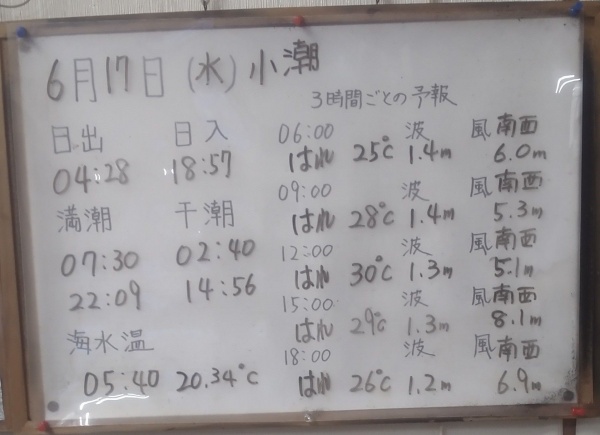 6月17日(水)小潮
3時間ごとの予報
日出 日入
04:28 18:57
満潮 干潮
07:30 02:40
22:09 14:56
海水温
05:40 20.34℃
06:00 波 風南西
はれ 25℃ 1.4m 6.0m
09:00 波 風南西
はれ 28℃ 1.4m 5.3m
12:00 波 風南西
はれ 30℃ 1.3m 5.1m
15:00 波 風南西
はれ 29℃ 1.3m 8.1m
18:00 波 風南西
はれ 26℃ 1.2m 6.9m